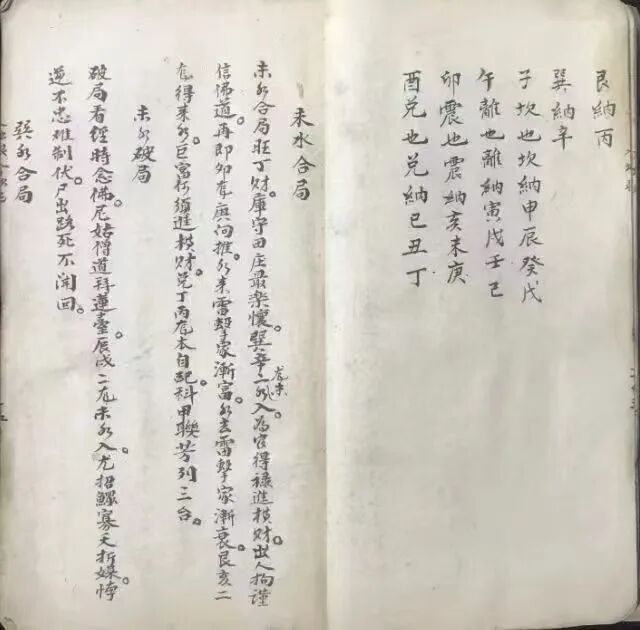 艮納丙
巽納辛
子坎也坎納申辰癸戊
午離也離納寅戌壬己
卯震也震納亥未庚
酉兌也兌納巳丑丁
未水合局
未水合局旺丁財。庫守田庄最楽懷。巽辛二水入為官得祿進横財。出人拘謹
龙来
信佛道。再即卯龙庚向推。水来雷擊家漸富。水去雷擊家漸衰。艮亥二
龙得来水。巨富何須進横財。兌丁丙龙本自配科甲聯芳列三台。
未水破局
破局看經時念佛。尼姑僧道拜蓮臺。辰戌二龙未水入。尤招鰥寡夭折媒悖
逆不忠难制伏。尸出路死不闹回。
巽水合局